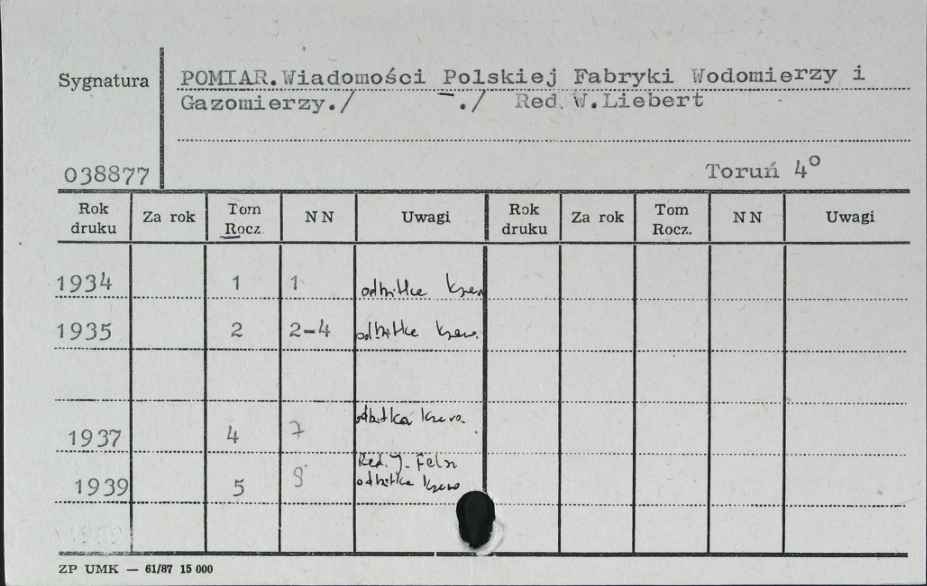 Sygnatura
POMIAR.Wiadomości Polskiej Fabryki Wodomierzy i
Gazomierzy./ -./ Red. W.Liebert
038877
Toruń 4°
Rok druku Za rok Tom Rocz. NN Uwagi Rok druku Za rok Tom Rocz. NN Uwagi
1934 1 1 odbitka kser
1935 2 2-4 odbitka ksero.
1937 4 7 odbitka ksero.
Red. J.
1939 5 8 odbitka ksero
ZP UMK — 61/87 15 000